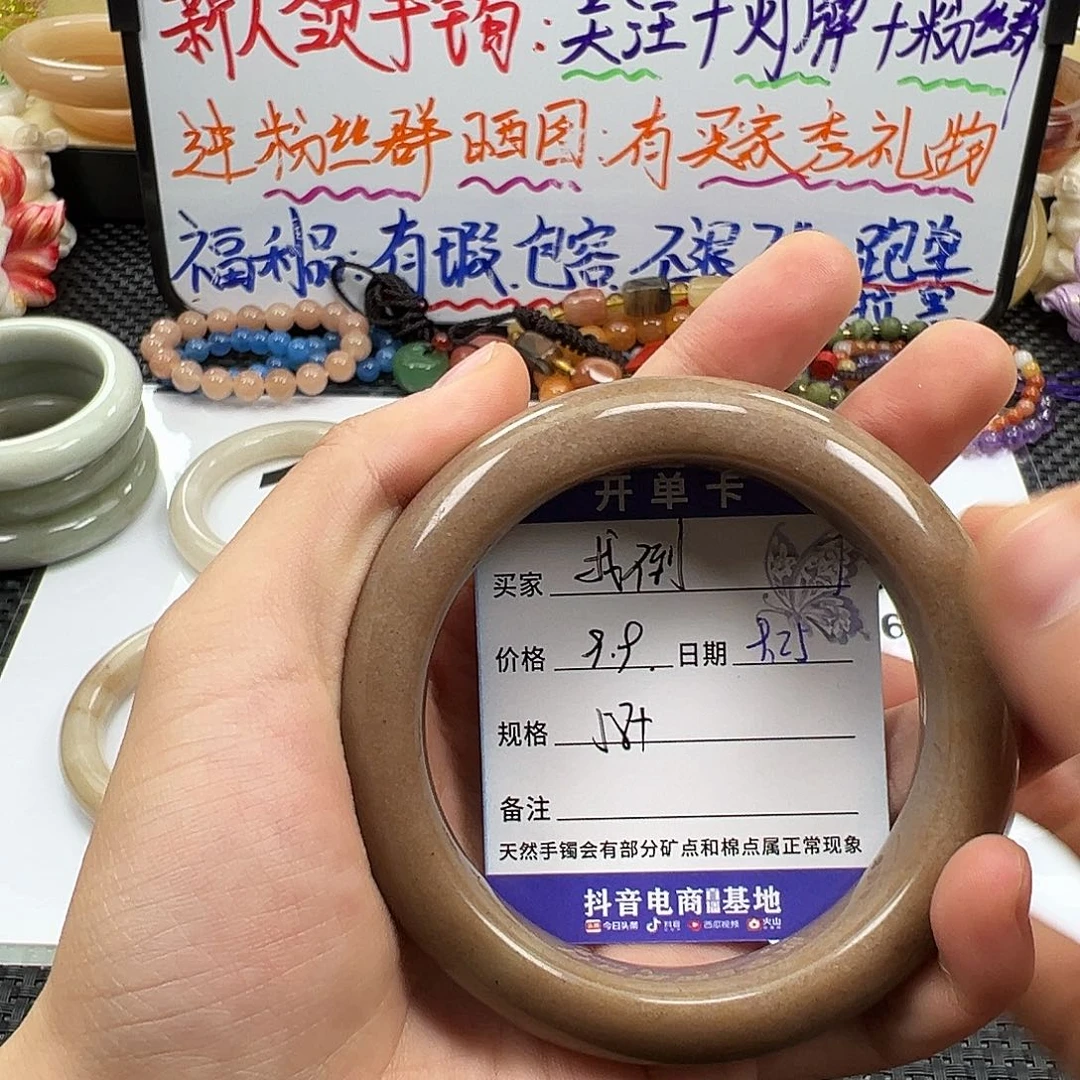 新人领手镯：关注+灯牌+粉丝群
进粉丝群晒图：有买家秀礼物
福利品：有瑕.包容.不退 跑单
拉黑
开单卡
买家
价格 9.9 日期 8.25
规格 58+
备注
天然手镯会有部分矿点和棉点属正常现象
抖音电商直播基地
今日头条 抖音 西瓜视频 火山
6